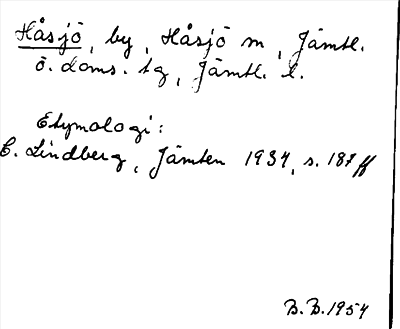 Håsjö, by, Håsjö m, Jämtl.
ö. doms. tg, Jämtl. l.
Etymologi:
C. Lindberg, Jämten 1934, s. 187 ff
B.B. 1954